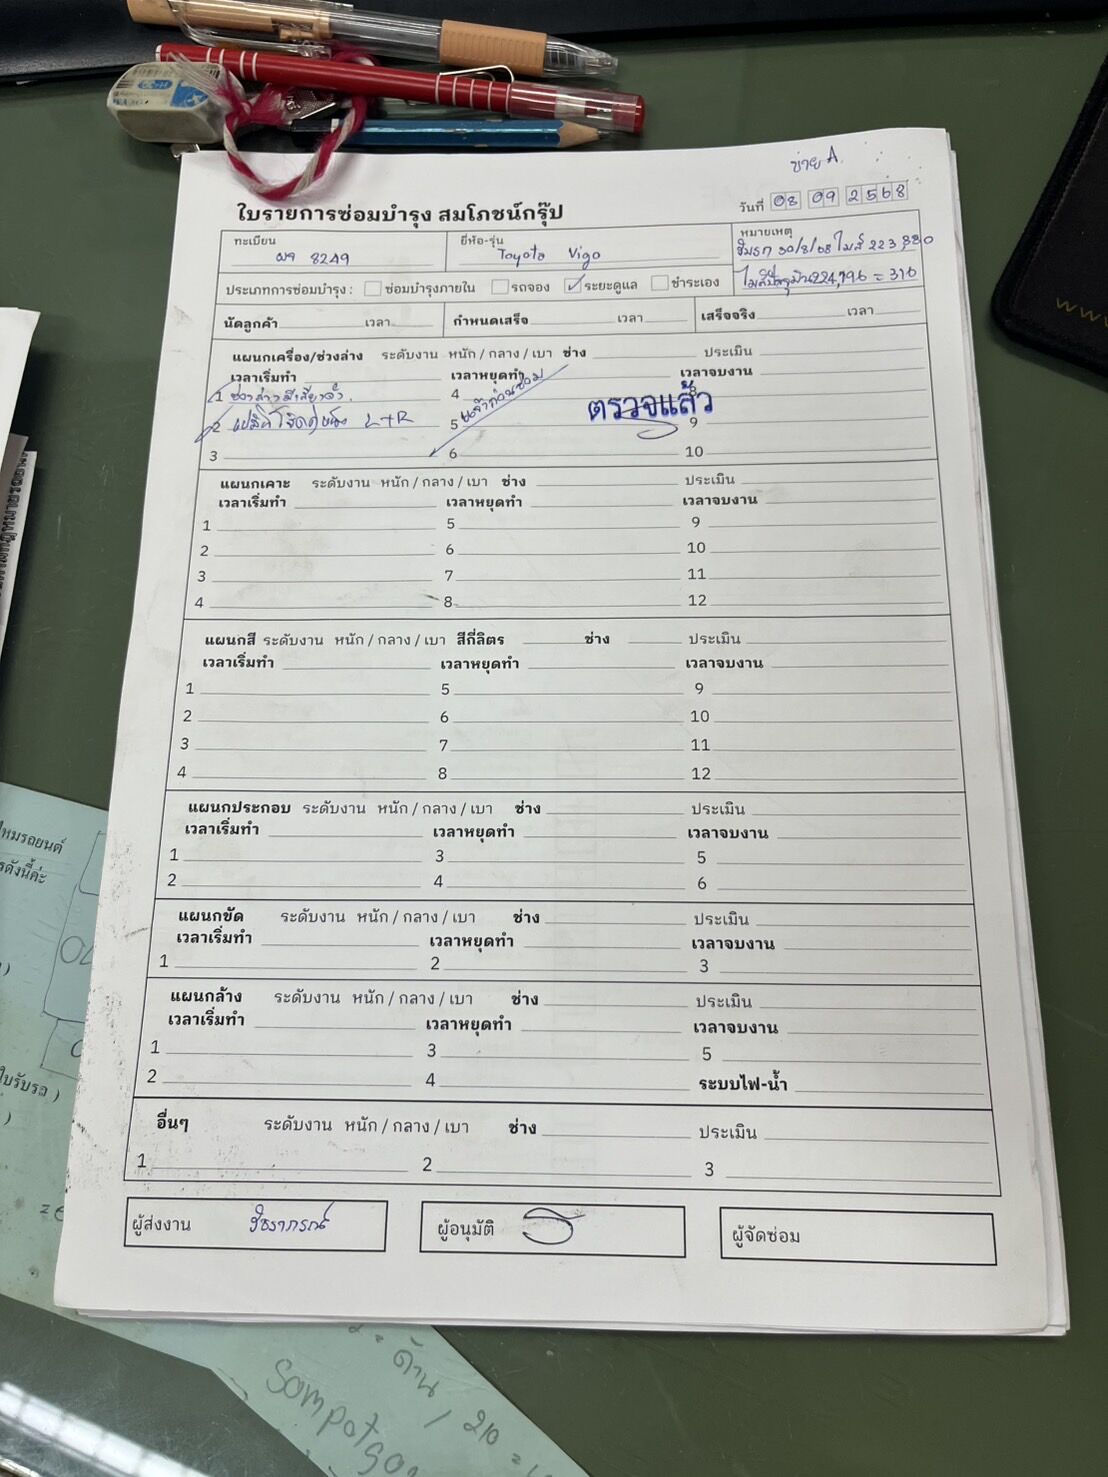 ขาย A
ใบรายการซ่อมบำรุง สมโภชน์กรุ๊ป
วันที่ 08 09 2568
ทะเบียน 8249
ยี่ห้อ-รุ่น Toyota Vigo
หมายเหตุ
30/8/68 ไมล์ 223,880
224,196 = 316
ประเภทการซ่อมบำรุง : ซ่อมบำรุงภายใน รถจอง ✓ ระยะดูแล ชำระเอง
นัดลูกค้า เวลา กำหนดเสร็จ เวลา เสร็จจริง เวลา
แผนกเครื่อง/ช่วงล่าง ระดับงาน หนัก / กลาง / เบา ช่าง ประเมิน
เวลาเริ่มทำ เวลาหยุดทำ เวลาจบงาน
1 ช่วงล่างมีเสียงดัง 4 8
แจ้งก่อนซ่อม
ตรวจแล้ว
2 L+R 5 9
3 6 10
แผนกเคาะ ระดับงาน หนัก / กลาง / เบา ช่าง ประเมิน
เวลาเริ่มทำ เวลาหยุดทำ เวลาจบงาน
1 5 9
2 6 10
3 7 11
4 8 12
แผนกสี ระดับงาน หนัก / กลาง / เบา สีกี่ลิตร ช่าง ประเมิน
เวลาเริ่มทำ เวลาหยุดทำ เวลาจบงาน
1 5 9
2 6 10
3 7 11
4 8 12
แผนกประกอบ ระดับงาน หนัก / กลาง / เบา ช่าง ประเมิน
เวลาเริ่มทำ เวลาหยุดทำ เวลาจบงาน
1 3 5
2 4 6
แผนกขัด ระดับงาน หนัก / กลาง / เบา ช่าง ประเมิน
เวลาเริ่มทำ เวลาหยุดทำ เวลาจบงาน
1 2 3
แผนกล้าง ระดับงาน หนัก / กลาง / เบา ช่าง ประเมิน
เวลาเริ่มทำ เวลาหยุดทำ เวลาจบงาน
1 3 5
2 4 ระบบไฟ-น้ำ
อื่นๆ ระดับงาน หนัก / กลาง / เบา ช่าง ประเมิน
1 2 3
ผู้ส่งงาน
ผู้อนุมัติ
ผู้จัดซ่อม
ไหมรถยนต์
รดังนี้ค่ะ
ใบรับรถ )
= ด้าน / 210 =